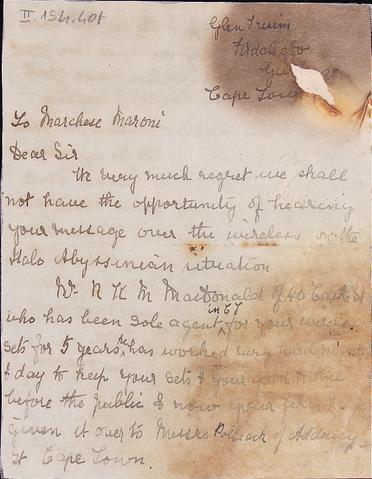 II. 154.40t
Glen
Cape Town
To Marchese Maroni
Dear Sir
We very much regret we shall
not have the opportunity of hearing
your message over the wireless on the
Italo Abyssinian situation
Mr N K M MacDonald of 40 Castle St
who has been sole agent in C T for your wireless
sets for 5 years, he has worked very hard
& day to keep your sets & your name
before the public & now your firm
given it over to Messrs Pollack of Adderley
St Cape Town.